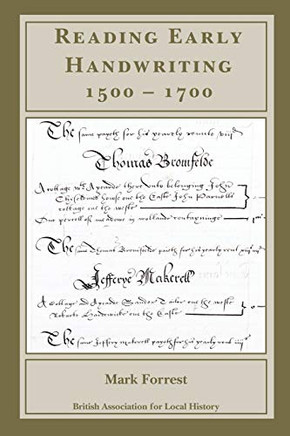 READING EARLY
HANDWRITING
1500 – 1700
The same payeth for his yearly rente
Thomas Bromfelde
A cottage and A yarde there unto belonging John
house on the Easte John
cottage on the weste
One percell of meadowe in
The same Thomas Bromfelde payth for his yearly rent
Jefferye Makerell
A Cottage and A yarde on the weste
on the Easte
The same Jeffery makerell payeth for his yearly rent
Mark Forrest
British Association for Local History